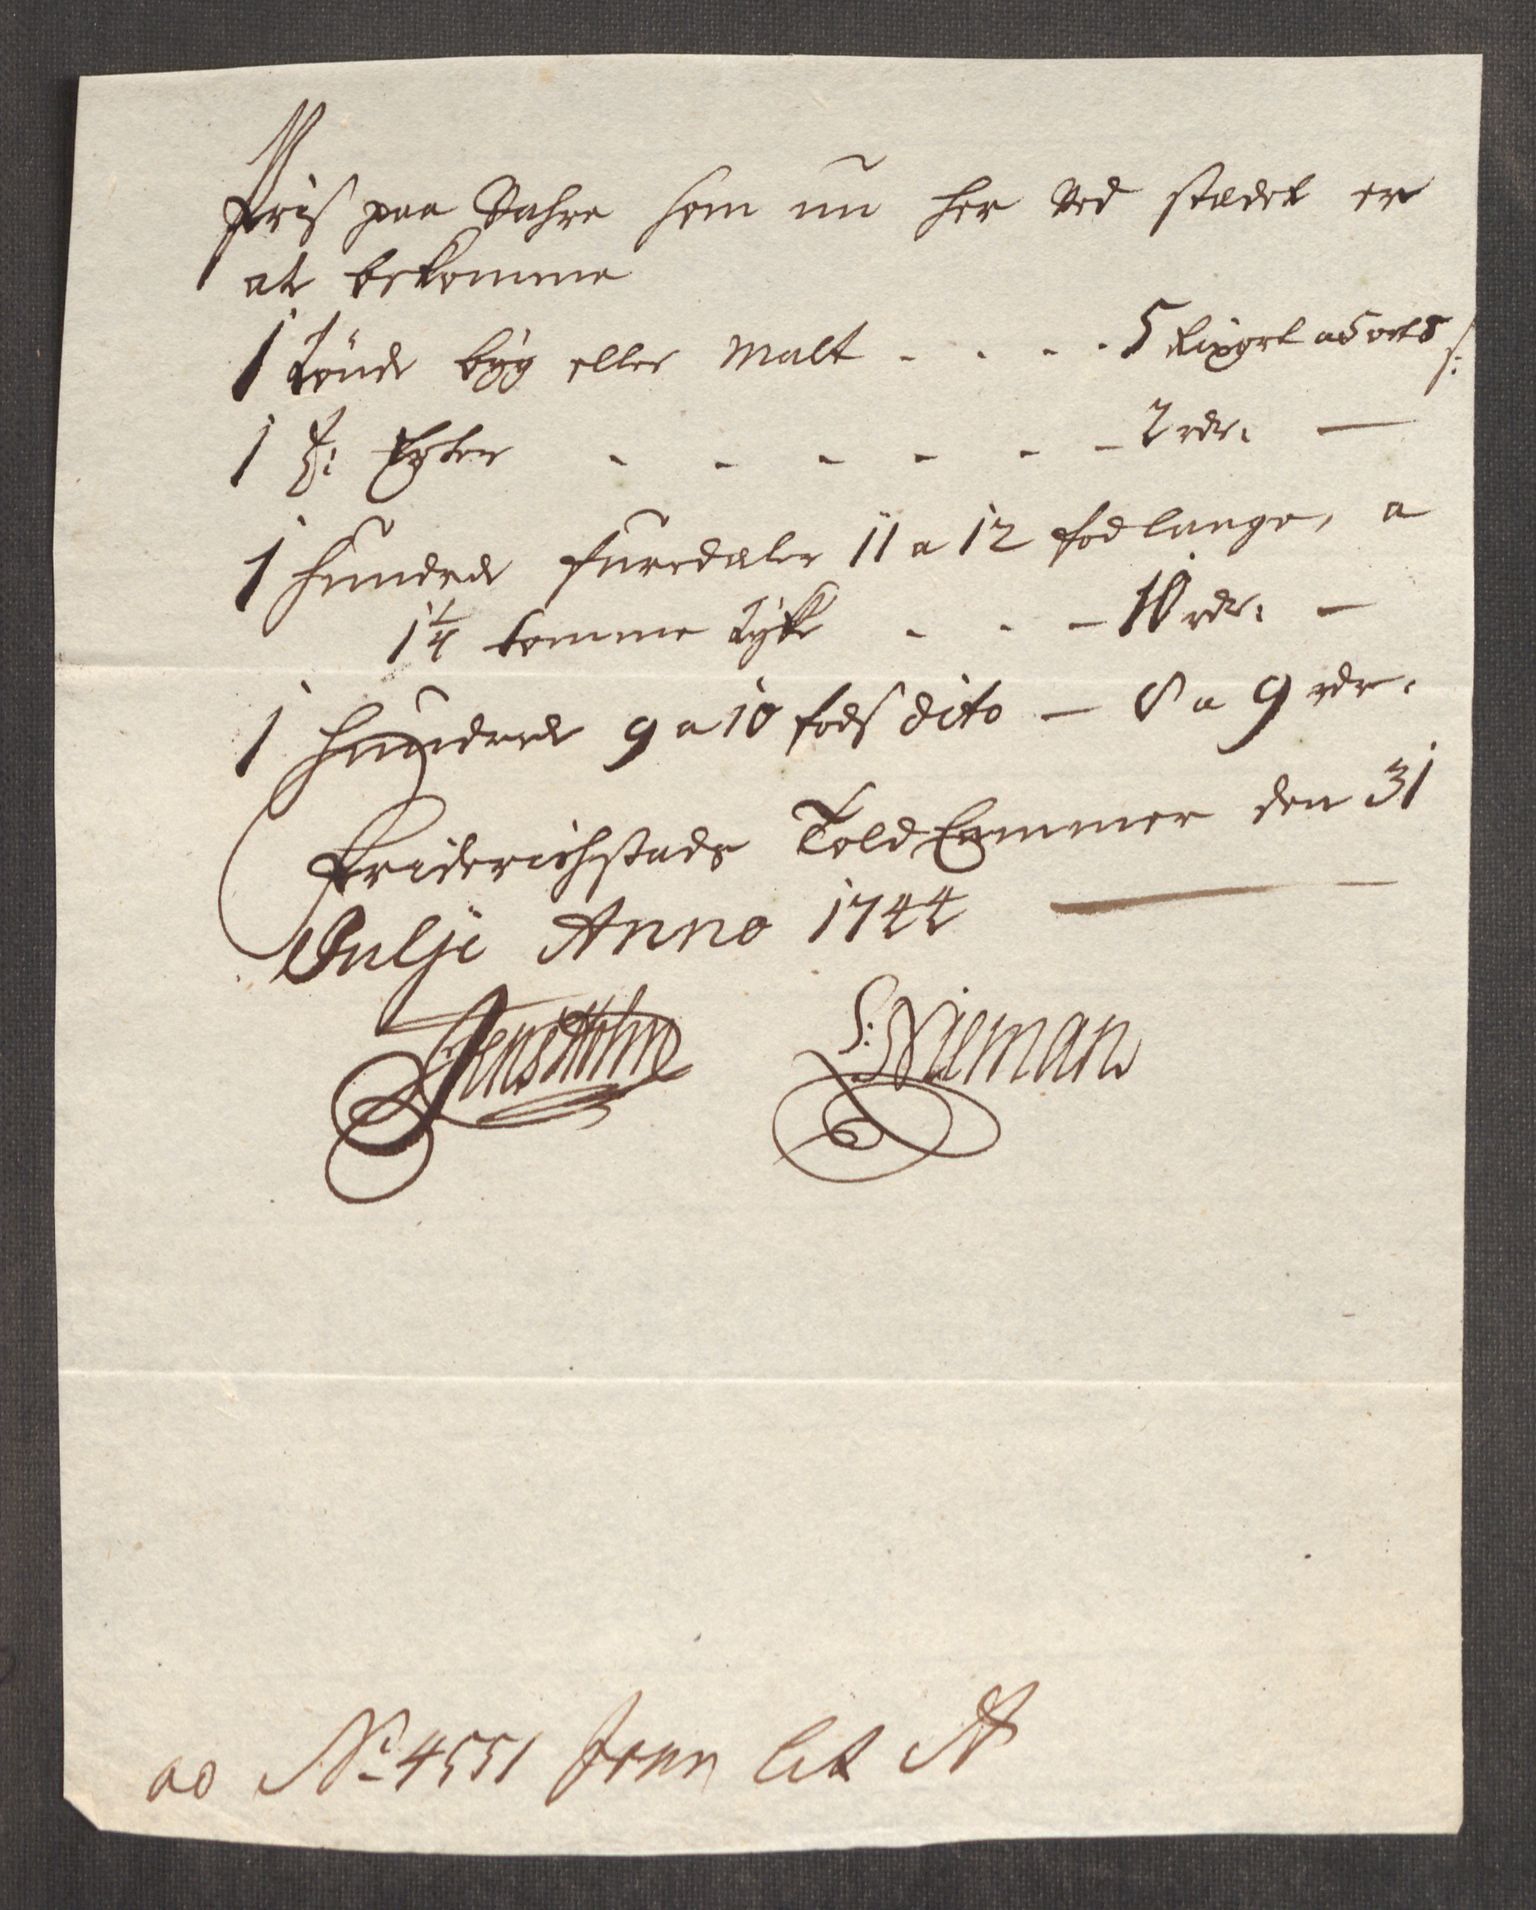 Pris paa Vahre som nu her ved stædet er
at bekomme
1 tønde byg eller Malt - - - - 5 a 5 ort 8 s:
1 t: Erter - - - - - - 2 rdr. —
1 hundrede furedæler 11 a 12 fod lange, a
1 1/4 tomme tyk - - - 10 rdr: —
1 hundrede 9 a 10 fods dito — 8 a 9 rdr.
Friderichstads Told Cammer den 31
Julji Anno 1744 —
Jens Holm S: Nieman
ad No 4551 lit A